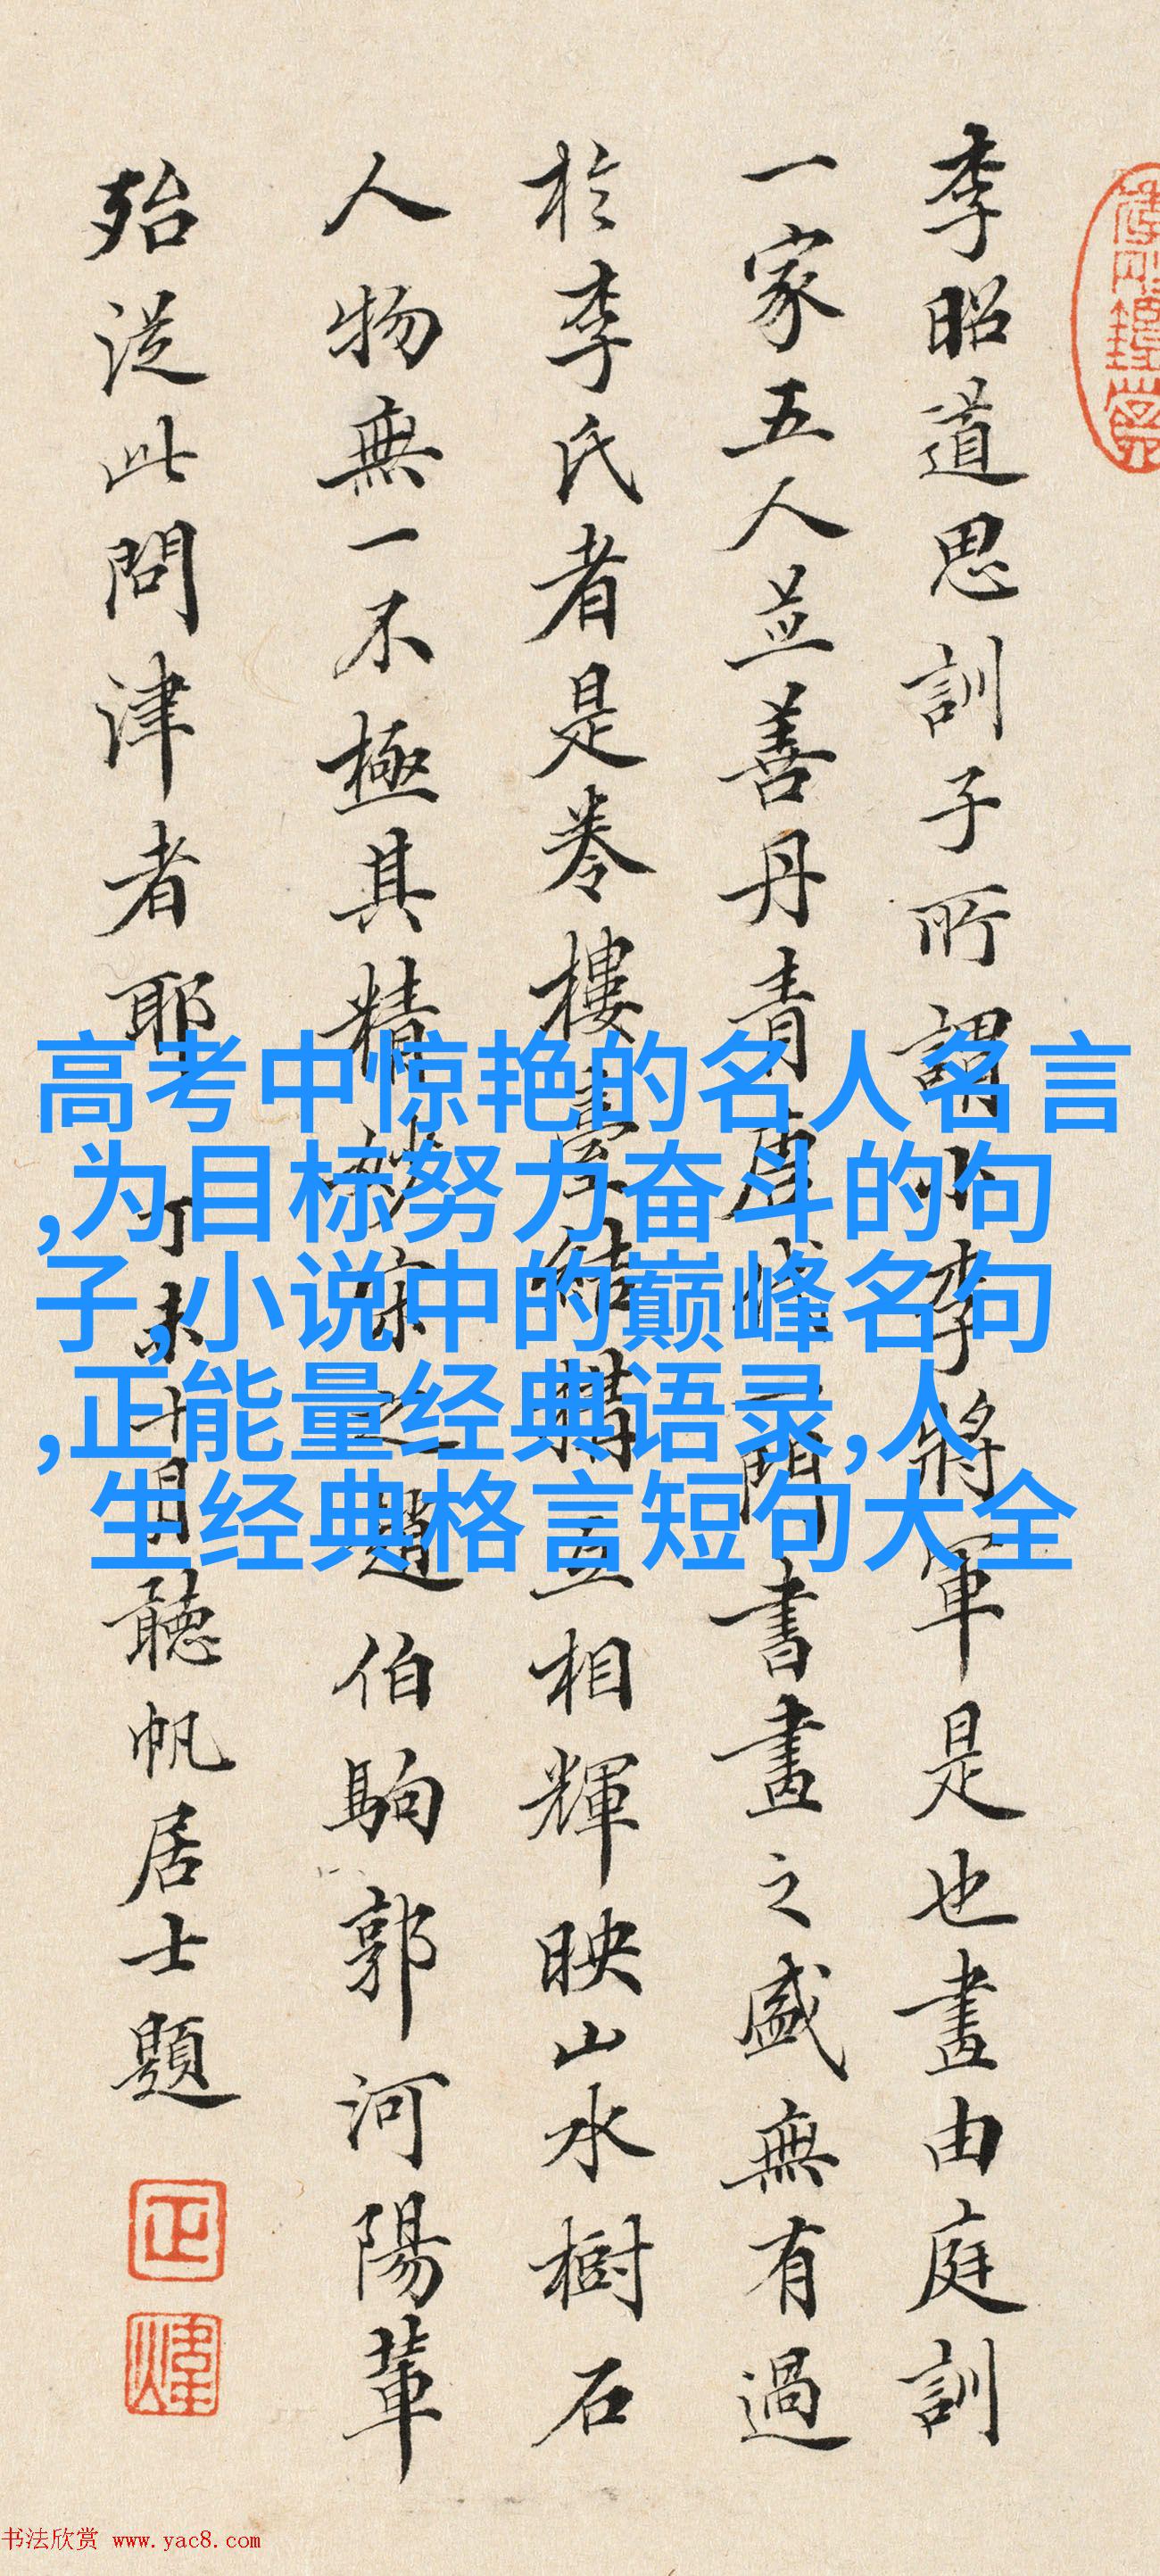 李昭道思訓子所謂小李將軍是也畫由庭訓
一家五人並善丹青唐城門書畫之盛無有過
於李氏者是卷樓臺結構互相輝映山水樹石
人物無一不極其精妙宗之趙伯駒郭河陽輩
殆從此問津者耶
聽帆居士題
高考中惊艳的名人名言
,为目标努力奋斗的句
子,小说中的巅峰名句
,正能量经典语录,人
生经典格言短句大全
书法欣赏 www.yac8.com